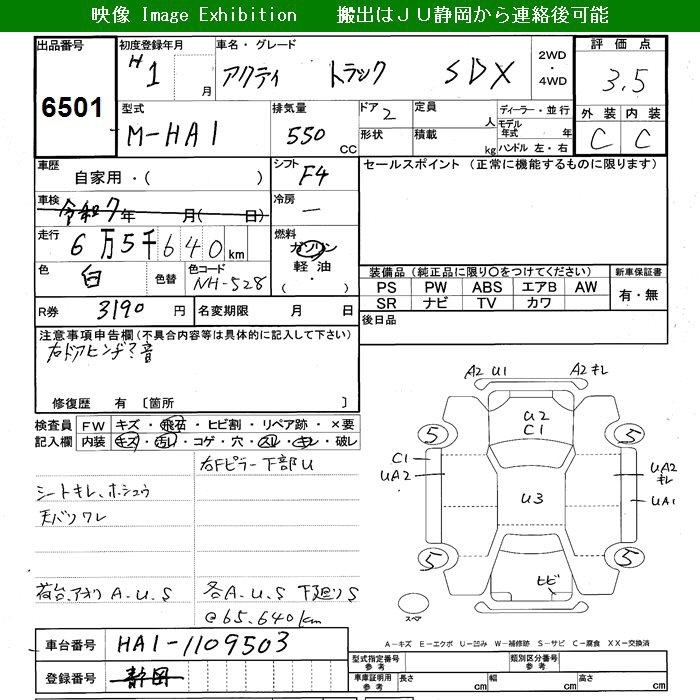 映像 Image Exhibition 搬出はＪＵ静岡から連絡後可能
出品番号 6501
初度登録年月 H 1 月
車名・グレード アクティ トラック SDX
2WD ・ 4WD
評価点 3.5
外装 内装
C C
型式 M-HA1
排気量 550 CC
ドア 2
形状
定員 人
積載 kg
ディーラー・並行
モデル年式 年
ハンドル 左・右
車歴 自家用・( )
シフト F4
セールスポイント (正常に機能するものに限ります)
車検 令和7年 月( 日)
冷房 ―
走行 6万5千640km
燃料 ガソリン
軽油
( ・ )
色 白 色替
色コード NH-528
装備品 (純正品に限り〇をつけてください)
PS PW ABS エアB AW
SR ナビ TV カワ
新車保証書
有・無
R券 3190 円
名変期限 月 日
後日品
注意事項申告欄(不具合内容等は具体的に記入して下さい)
右ドアヒンヂ?音
修復歴 有 〔箇所 〕
検査員記入欄
FW キズ・飛石・ヒビ割・リペア跡・×要
内装 キズ・汚レ・コゲ・穴・スレ・キレ・破レ
右Fピラー下部U
シートキレ、ホシュウ
天バリワレ
荷台、アオリ A.U.S
各A.U.S 下廻りS
@65.640km
A2 U1 A2 キレ
U2
C1
5 5
C1
UA2
U3
UA2
キレ
UA1
5 5
ヒビ
スペア
A－キズ E－エクボ U－凹み W－補修跡 S－サビ C－腐食 XX－交換済
車台番号 HA1-1109503
登録番号 静岡
型式指定番号 参考
類別区分番号 参考
車庫証明用 参考
長さ cm
幅 cm
高さ cm